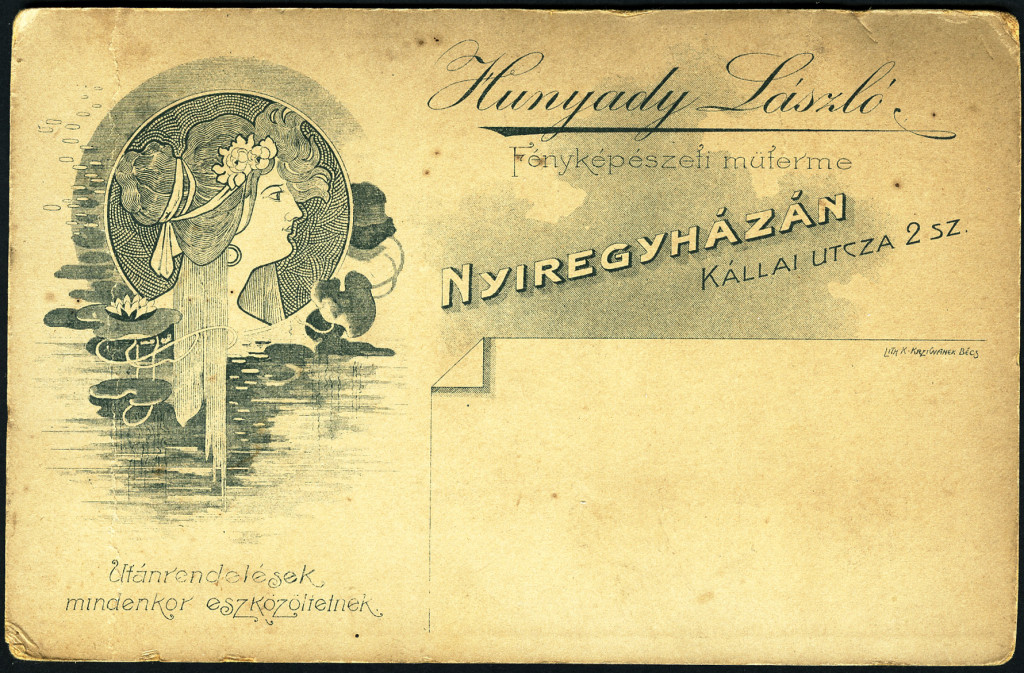 Hunyady László
Fényképészeti műterme
NYIREGYHÁZÁN
KÁLLAI UTCZA 2 SZ.
LITH. K. KRZIWANEK BÉCS
Utánrendelések
mindenkor eszközöltetnek.